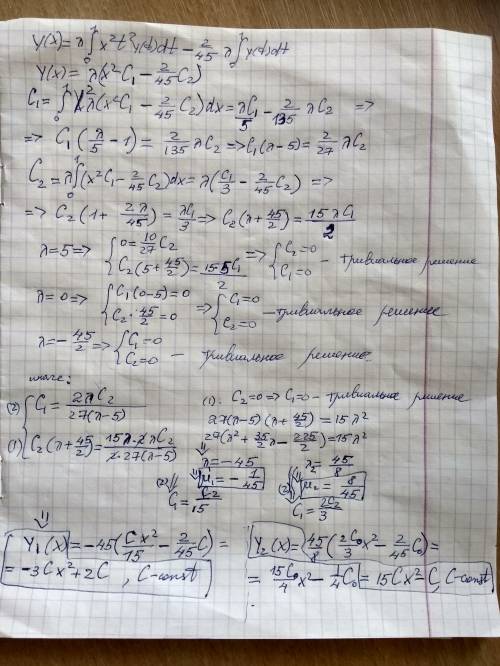 y(x) = λ∫₀¹ x²t²y(t)dt − 2/45 λ∫₀¹ y(t)dt
y(x) = λ(x²C₁ − 2/45 C₂)
C₁ = ∫₀¹ x²λ(x²C₁ − 2/45 C₂)dx = λC₁/5 − 2/135 λC₂ =>
=> C₁(λ/5 − 1) = 2/135 λC₂ => C₁(λ−5) = 2/27 λC₂
C₂ = λ∫₀¹ (x²C₁ − 2/45 C₂)dx = λ(C₁/3 − 2/45 C₂) =>
=> C₂(1 + 2λ/45) = λC₁/3 => C₂(λ + 45/2) = 15λC₁/2
λ=5 => { 0 = 10/27 C₂ ; C₂(5 + 45/2) = 15·5C₁/2 => { C₂=0 ; C₁=0 – тривиальное решение
λ=0 => { C₁(0−5) = 0 ; C₂·45/2 = 0 => { C₁=0 ; C₂=0 – тривиальное решение
λ=−45/2 => { C₁=0 ; C₂=0 – тривиальное решение.
иначе:
(2) { C₁ = 2λC₂/27(λ−5)
(1) C₂(λ + 45/2) = 15λ·2λC₂/2·27(λ−5)
(1): C₂=0 => C₁=0 – тривиальное решение
27(λ−5)(λ + 45/2) = 15λ²
27(λ² + 35/2 λ − 225/2) = 15λ²
λ₁ = −45 λ₂ = 45/8
(2) μ₁ = −1/45 (2) μ₂ = 8/45
C₁ = C₂/15 C₁ = 2C₂/3
y₁(x) = −45(Cx²/15 − 2/45 C) =
= −3Cx² + 2C, C-const
y₂(x) = 45/8 (2C₀/3 x² − 2/45 C₀) =
= 15C₀/4 x² − 1/4 C₀ = 15Cx² − C, C-const